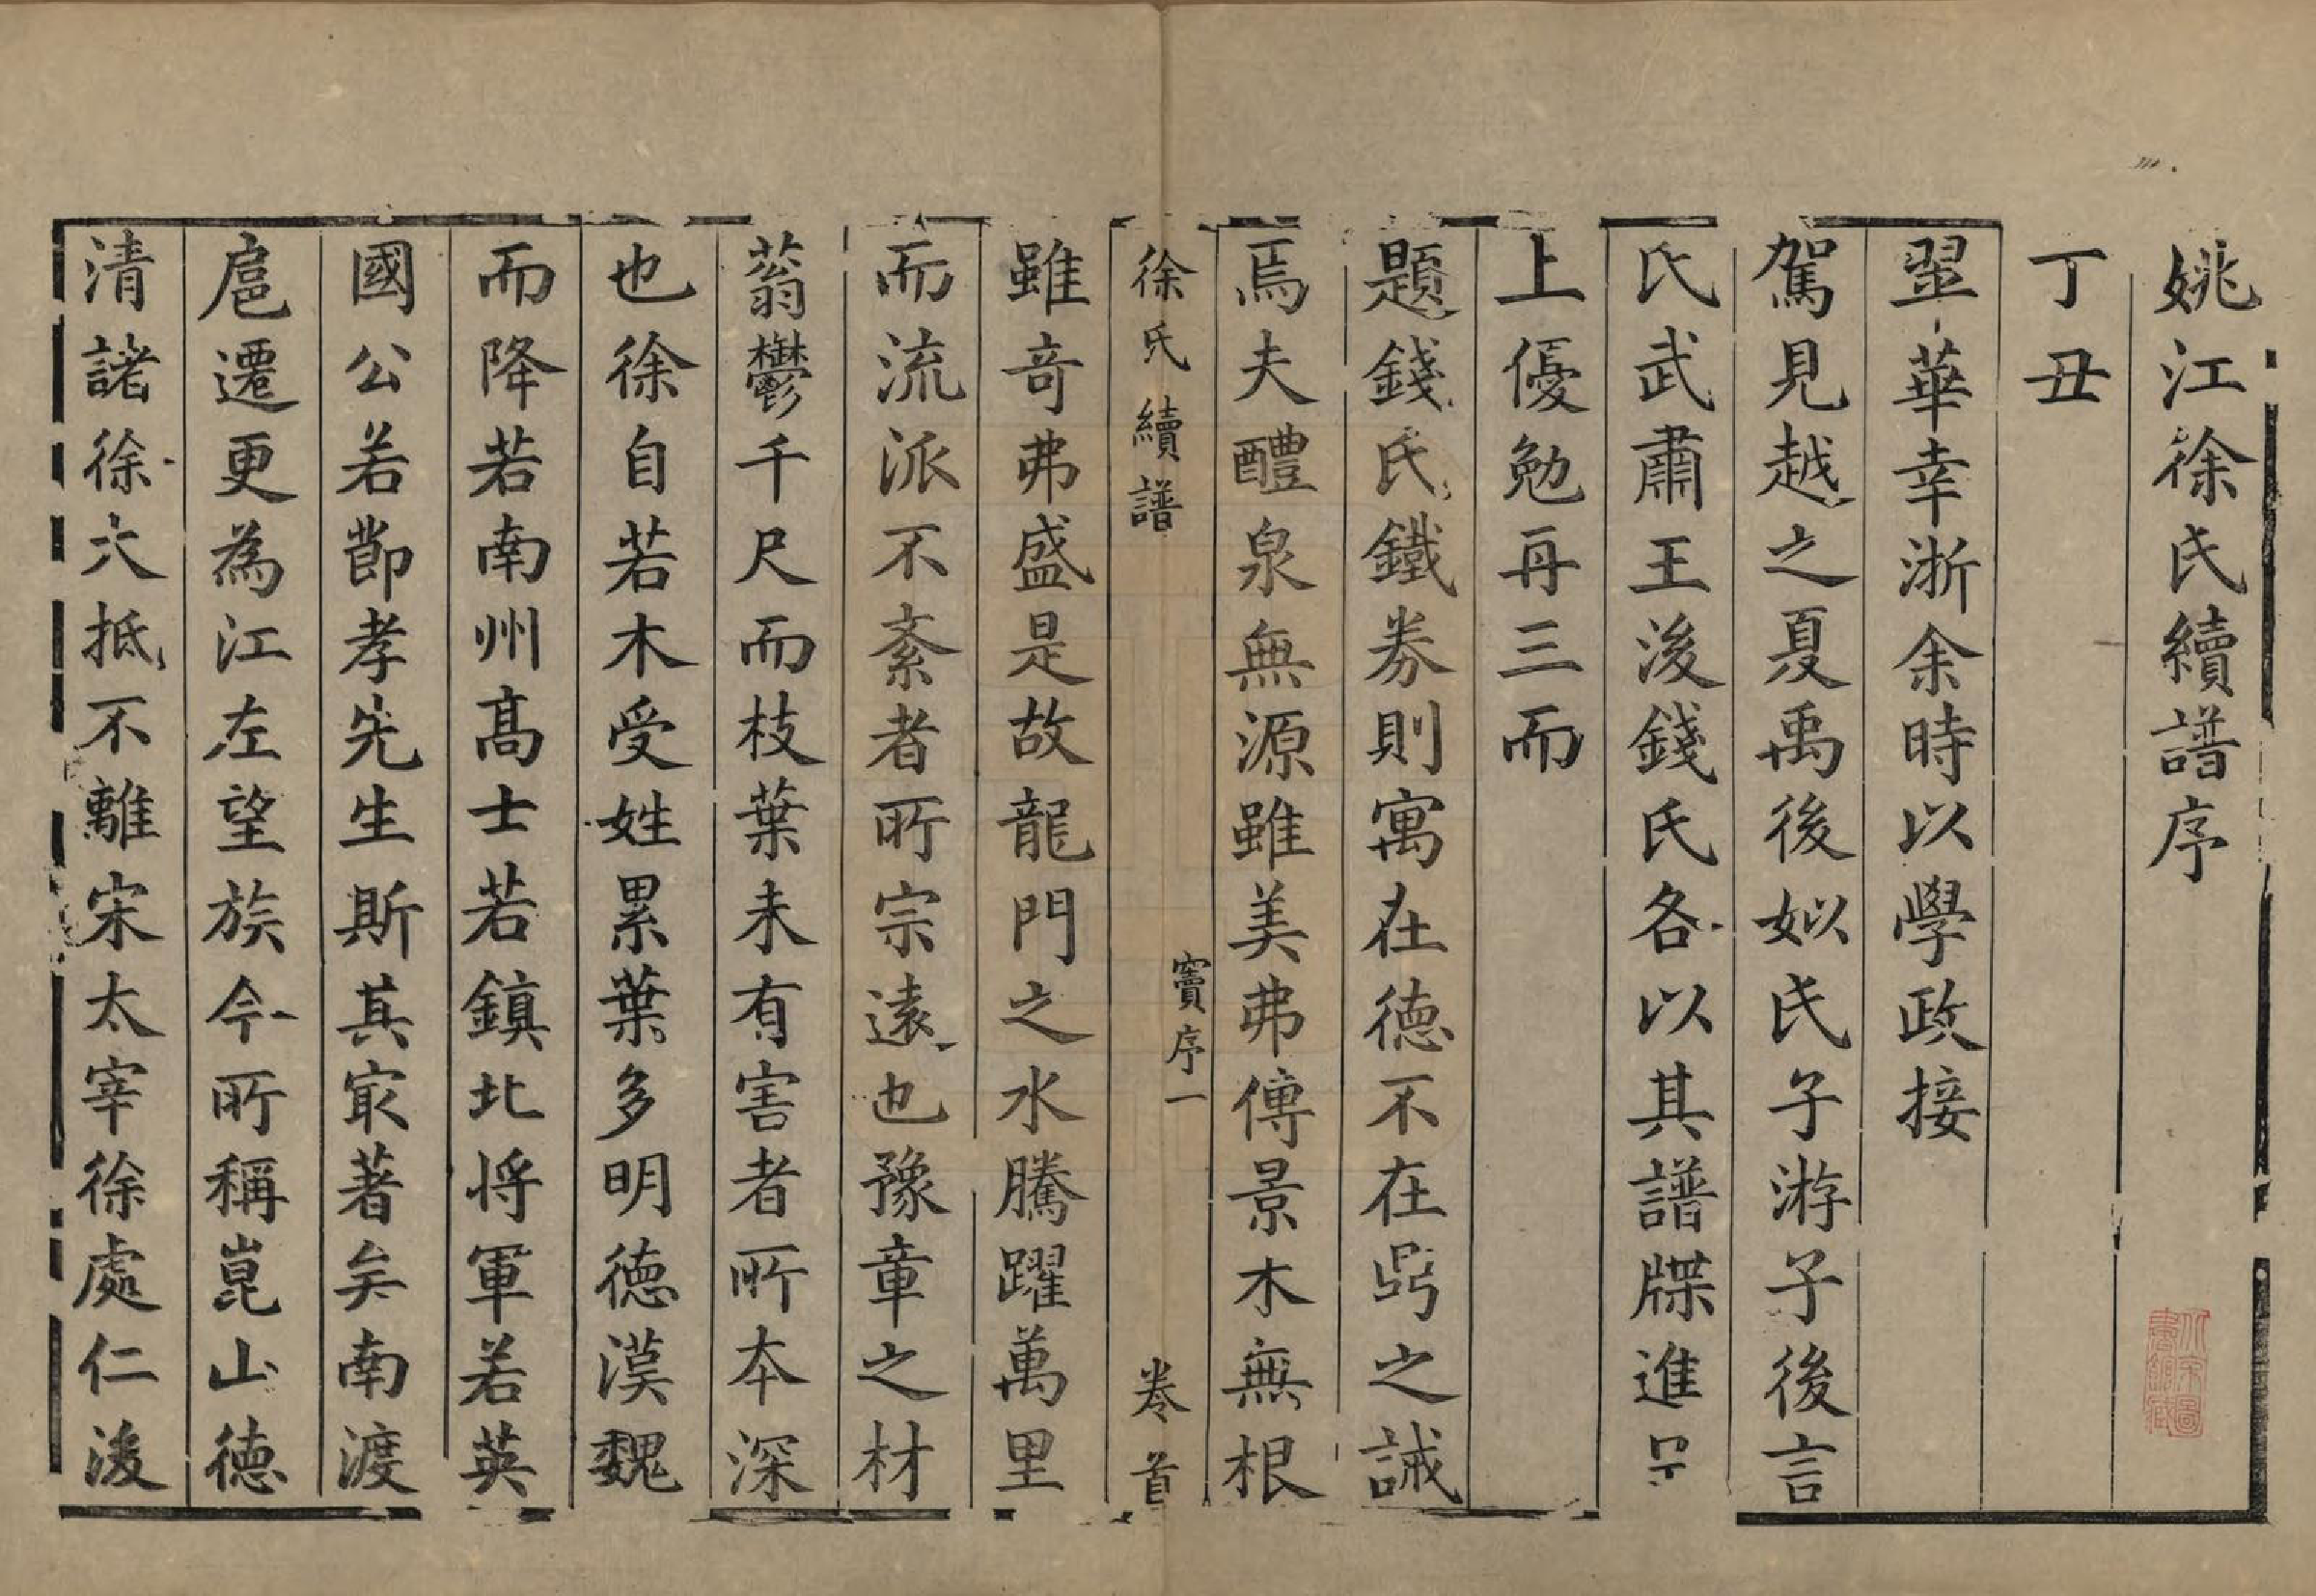 姚江徐氏續譜序
丁丑
翠華幸浙余時以學政接
駕見越之夏禹後姒氏子游子後言
氏武肅王後錢氏各以其譜牒進呈
上優勉再三而
題錢氏鐵券則寓在德不在號之誡
焉夫醴泉無源雖美弗傳景木無根
徐氏續譜
竇序一
卷首
雖奇弗盛是故龍門之水騰躍萬里
而流派不紊者所宗遠也豫章之材
蓊鬱千尺而枝葉未有害者所本深
也徐自若木受姓累葉多明德漢魏
而降若南州高士若鎮北將軍若英
國公若節孝先生斯其㝡著矣南渡
扈遷更為江左望族今所稱崑山德
清諸徐大抵不離宋太宰徐處仁後